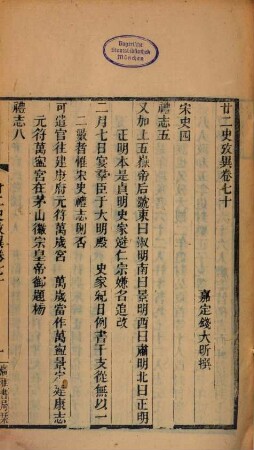 Bayerische
Staatsbibliothek
München
廿二史攷異卷七十
嘉定錢大昕撰
宋史四
禮志五
又加上五嶽帝后號東曰淑明南曰景明西曰肅明北曰正明
正明本是貞明史家避仁宗嫌名追改
二月七日宴羣臣于大明殿　史家紀日例書干支從無以一
二數者惟宋史禮志駒否
可遣官往建康府元符萬歲宮　萬歲當作萬寧景定建康志
元符萬寧宮在茅山徽宗皇帝御題榜
禮志八
廿二史攷異卷七十
一
廣雅書局栞